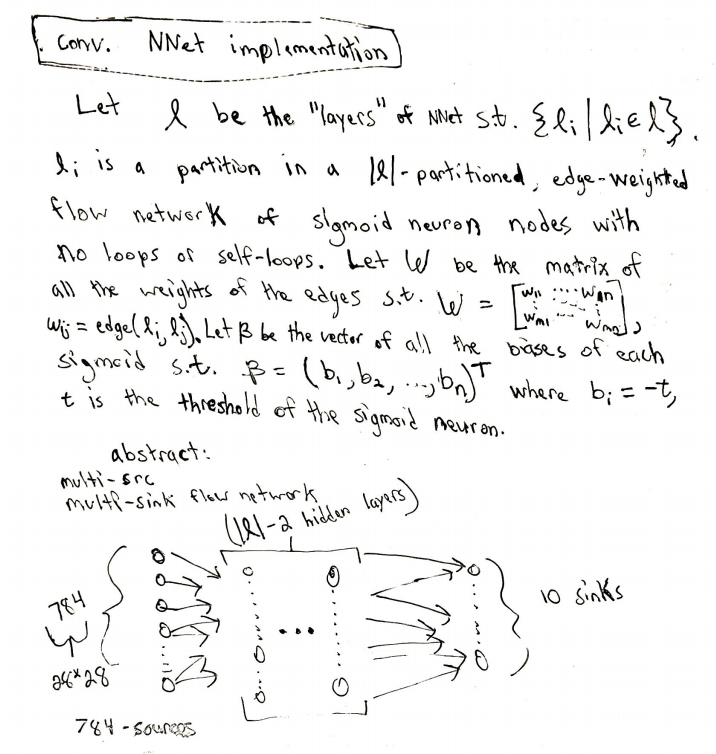 Conv. NNet implementation
Let l be the "layers" of NNet s.t. {lᵢ | lᵢ ∈ l}.
lᵢ is a partition in a |l|-partitioned, edge-weighted
flow network of sigmoid neuron nodes with
no loops or self-loops. Let W be the matrix of
all the weights of the edges s.t. W = [w₁₁ ... w₁ₙ
wₘ₁ ... wₘₙ],
wᵢⱼ = edge(lᵢ, lⱼ). Let β be the vector of all the biases of each
sigmoid s.t. β = (b₁, b₂, ..., bₙ)ᵀ where bᵢ = -t,
t is the threshold of the sigmoid neuron.
abstract:
multi-src
multi-sink flow network
(|l|-2 hidden layers)
784
28*28
...
10 sinks
784-sources